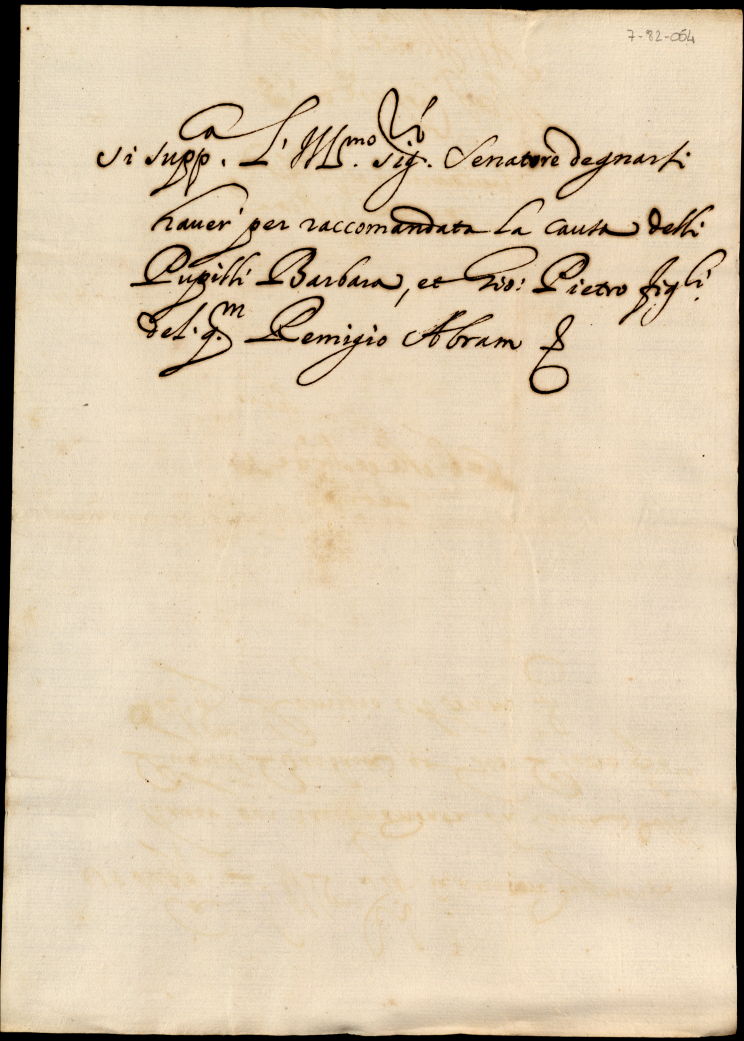 7-82-064
Si supp.ca L' Ill.mo Sig.r Senatore degnarsi
haver per raccomandata la causa delli
Pupilli Barbara, et Gio: Pietro figli
del q.m Remigio Abram